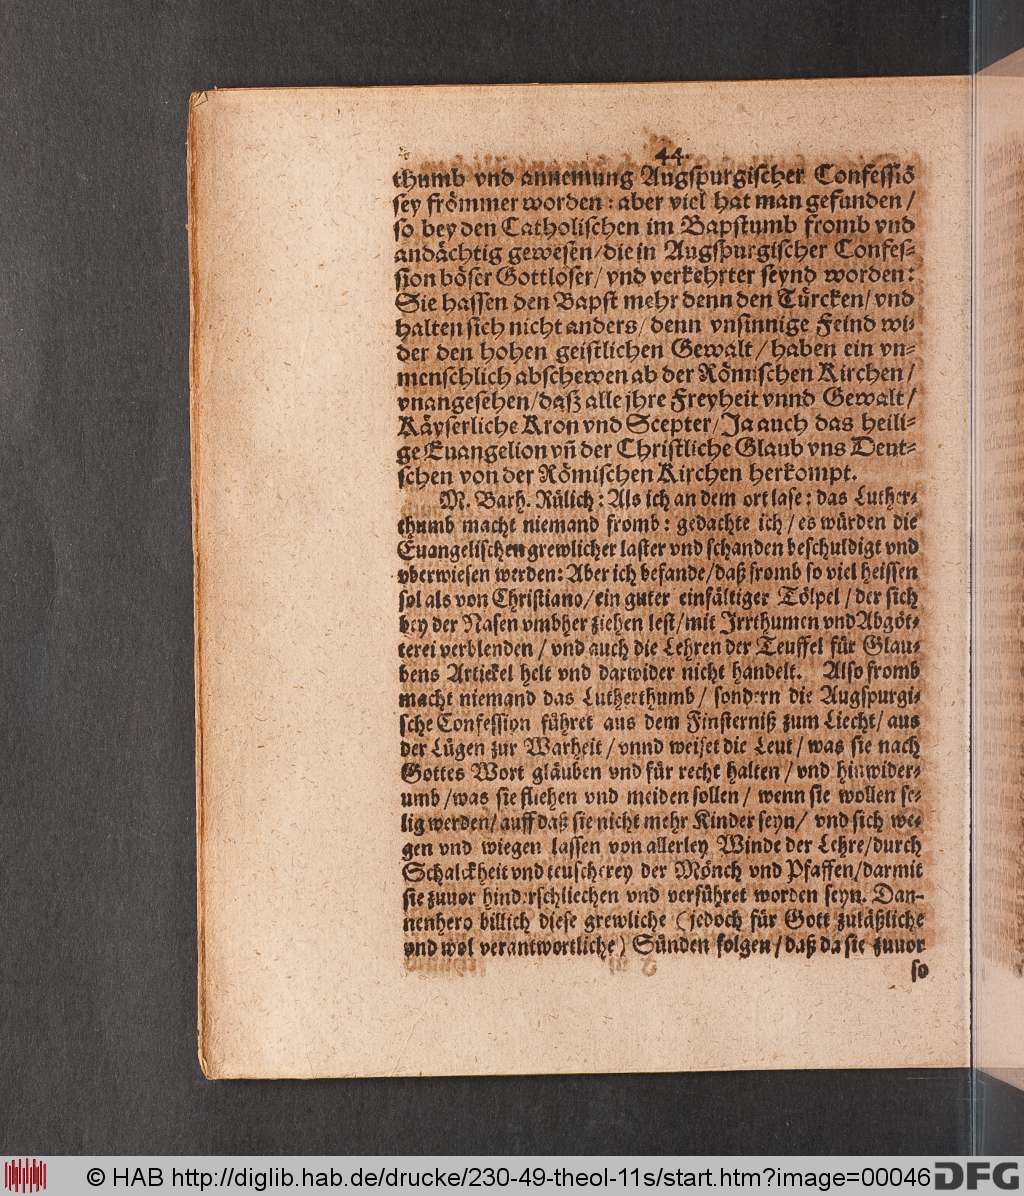 44.
thumb vnd annemung Augspurgischer Confessiō
sey frömmer worden: aber viel hat man gefunden /
so bey den Catholischen im Bapstumb fromb vnd
andächtig gewesen / die in Augspurgischer Confes-
sion böser Gottloser / vnd verkehrter seynd worden:
Sie hassen den Bapst mehr denn den Türcken / vnd
halten sich nicht anders / denn vnsinnige Feind wi-
der den hohen geistlichen Gewalt / haben ein vn-
menschlich abschewen ab der Römischen Kirchen /
vnangesehen / daß alle jhre Freyheit vnnd Gewalt /
Käyserliche Kron vnd Scepter / Ja auch das heili-
ge Euangelion vñ der Christliche Glaub vns Deut-
schen von der Römischen Kirchen herkompt.
M. Barh. Rülich: Als ich an dem ort lase: das Luther-
thumb macht niemand fromb: gedachte ich / es würden die
Euangelischen grewlicher laster vnd schanden beschuldigt vnd
vberwiesen werden: Aber ich befande / daß fromb so viel heissen
sol als von Christiano / ein guter einfältiger Tölpel / der sich
bey der Nasen vmbher ziehen lest / mit Jrrthumen vnd Abgöt-
terei verblenden / vnd auch die Lehren der Teuffel für Glau-
bens Artickel helt vnd darwider nicht handelt. Also fromb
macht niemand das Lutherthumb / sondern die Augspurgi-
sche Confession führet aus dem Finsterniß zum Liecht / aus
der Lügen zur Warheit / vnnd weiset die Leut / was sie nach
Gottes Wort gläuben vnd für recht halten / vnd hinwider-
umb / was sie fliehen vnd meiden sollen / wenn sie wollen se-
lig werden / auff daß sie nicht mehr Kinder seyn / vnd sich we-
gen vnd wiegen lassen von allerley Winde der Lehre / durch
Schalckheit vnd teuscherey der Mönch vnd Pfaffen / darmit
sie zuuor hinderschliechen vnd verführet worden seyn. Dan-
nenhero billich diese grewliche (jedoch für Gott zuläßliche
vnd wol verantwortliche) Sünden folgen / daß da sie zuuor
so
© HAB http://diglib.hab.de/drucke/230-49-theol-11s/start.htm?image=00046
DFG